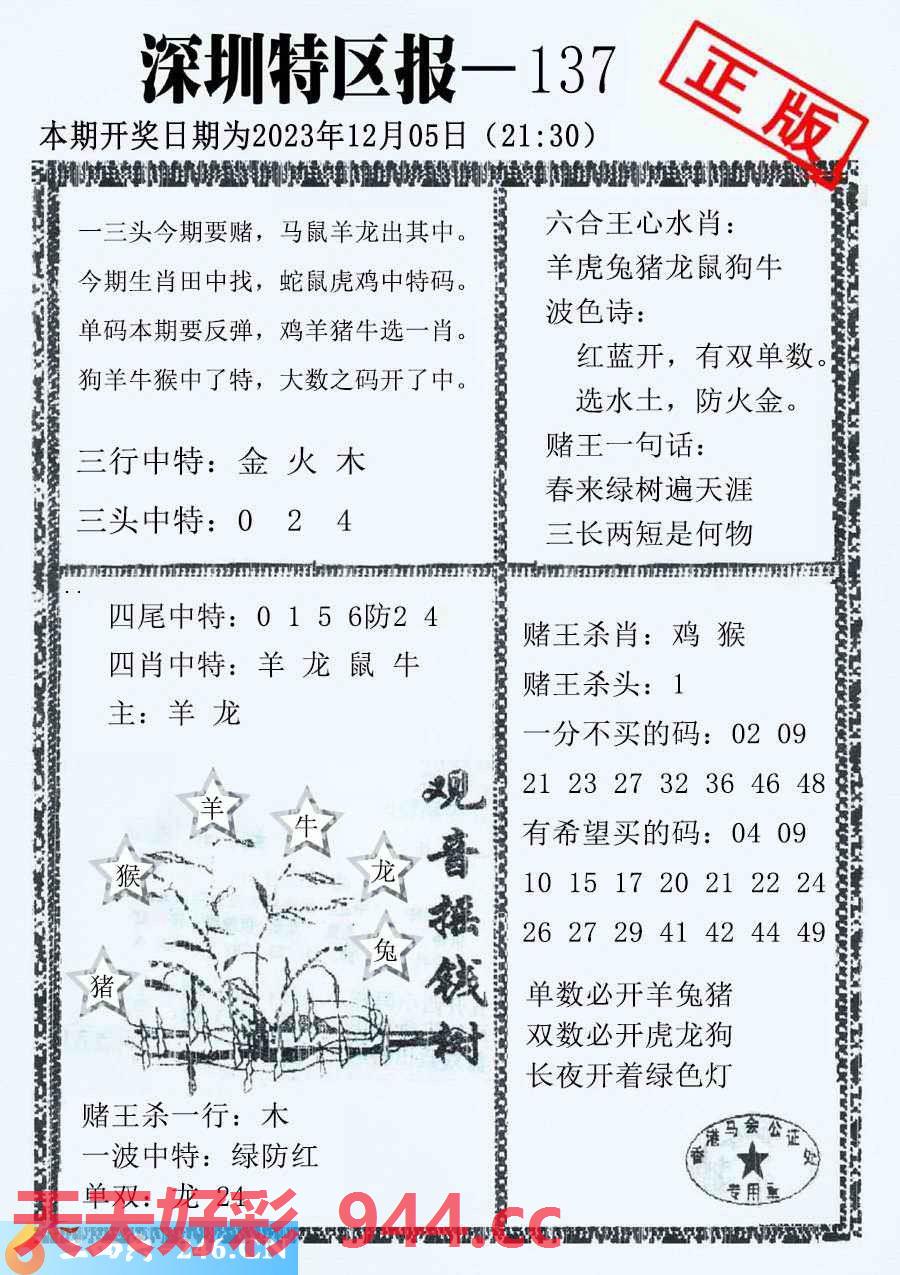 深圳特区报—137
正版
本期开奖日期为2023年12月05日（21:30）
一三头今期要赌，马鼠羊龙出其中。
今期生肖田中找，蛇鼠虎鸡中特码。
单码本期要反弹，鸡羊猪牛选一肖。
狗羊牛猴中了特，大数之码开了中。
三行中特：金 火 木
三头中特：0 2 4
六合王心水肖：
羊虎兔猪龙鼠狗牛
波色诗：
红蓝开，有双单数。
选水土，防火金。
赌王一句话：
春来绿树遍天涯
三长两短是何物
四尾中特：0 1 5 6防2 4
四肖中特：羊 龙 鼠 牛
主：羊 龙
羊
牛
猴
龙
兔
猪
观音摇钱树
赌王杀一行：木
一波中特：绿防红
单双：龙 24
赌王杀肖：鸡 猴
赌王杀头：1
一分不买的码：02 09
21 23 27 32 36 46 48
有希望买的码：04 09
10 15 17 20 21 22 24
26 27 29 41 42 44 49
单数必开羊兔猪
双数必开虎龙狗
长夜开着绿色灯
香港马会公证处
专用章
天天好彩 944.cc